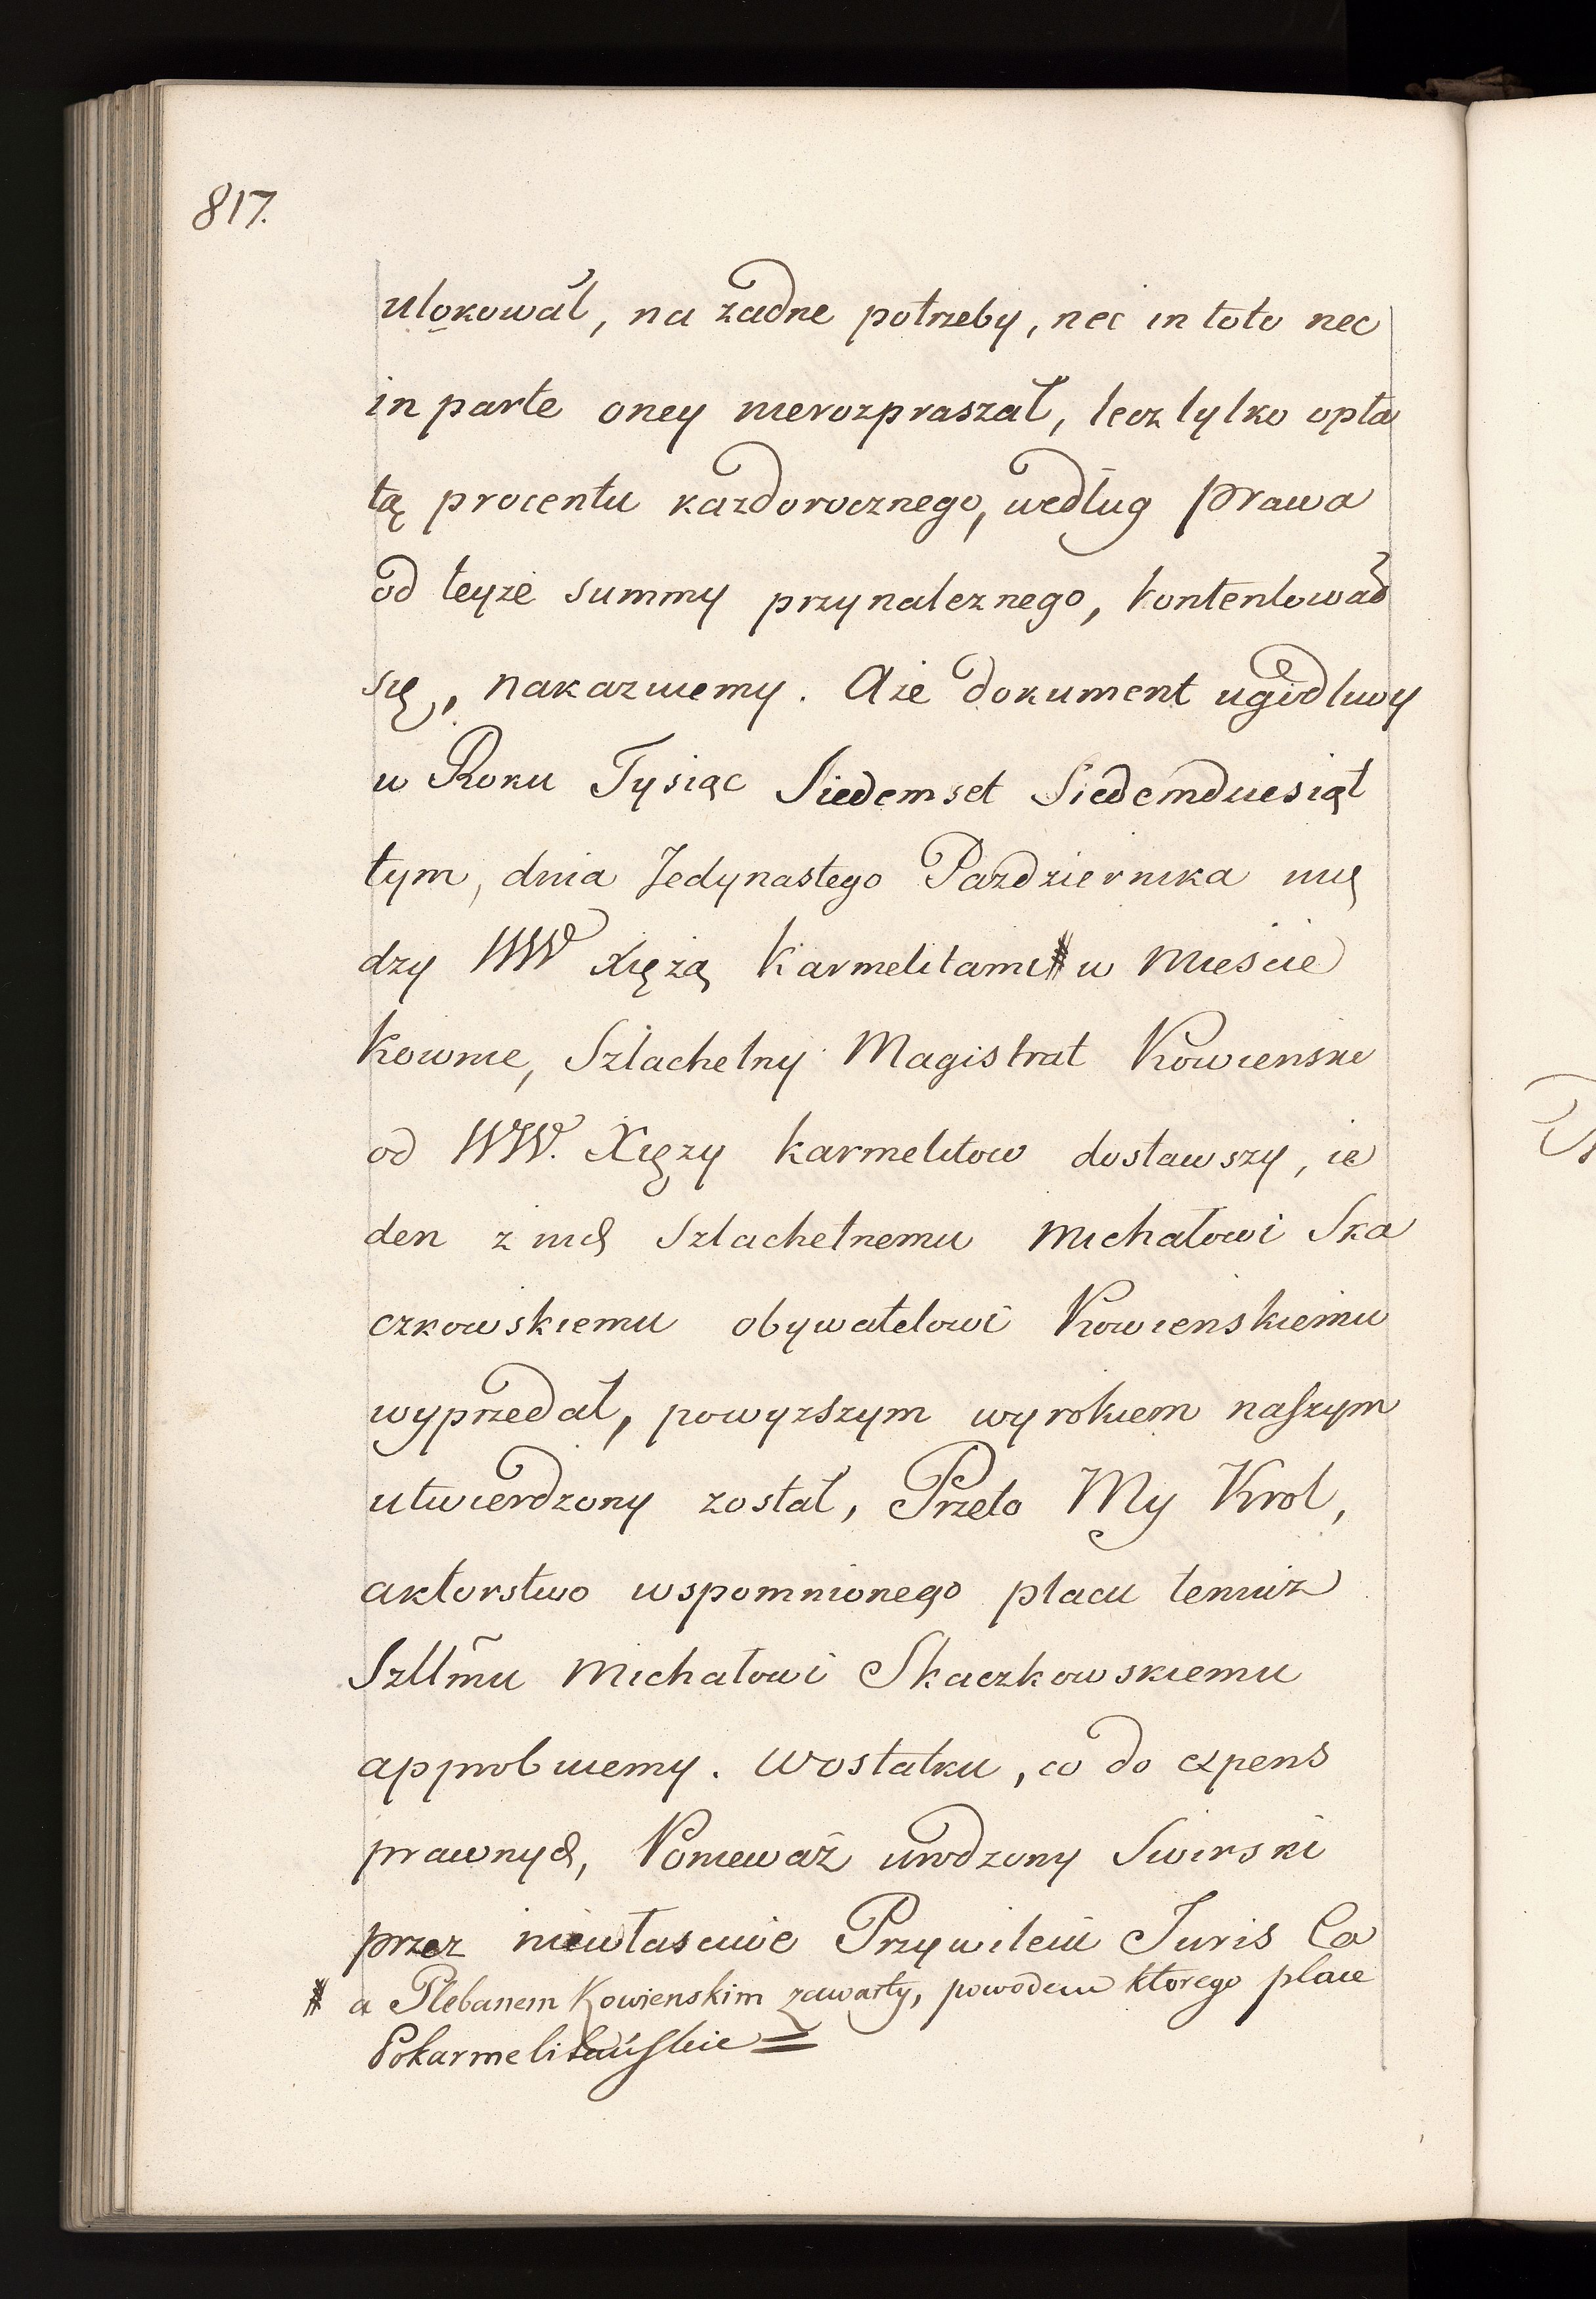 817.
ulokował, na żadne potrzeby, nec in toto nec
in parte oney nierozpraszał, lecz tylko opła
tą procentu każdorocznego, według prawa
od teyże summy przynaleznego, kontentował
się, nakazuiemy. Aże dokument ugodliwy
w Roku Tysiąc Siedemset Siedemdziesiąt
tym, dnia Jedynastego Pazdziernika mię
dzy WW Xiężą Karmelitami # w Mieście
Kownie, Szlachetny Magistrat Kowienski
od WW. Xięzy Karmelitow dostawszy, ie
den z nich Szlachetnemu Michałowi Ska
czkowskiemu obywatelowi Kowienskiemu
wyprzedał, powyzszym wyrokiem naszym
utwierdzony został, Przeto My Krol,
aktorstwo wspomnionego placu temuż
Szltm̃u Michałowi Skaczkowskiemu
approbuiemy. Wostatku, co do expens
prawnych, Ponieważ urodzony Swirski
przez niewłasciwie Przywileiu Juris Ca
# a Plebanem Kowienskim zawarty, powodem ktorego place
Pokarmelitańskie =